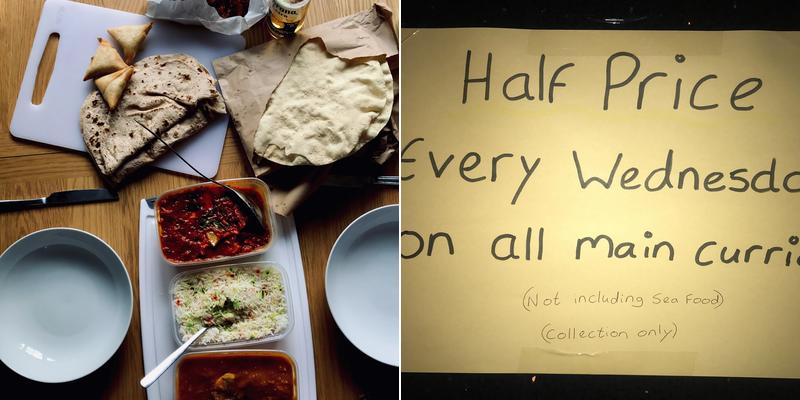 Half Price
Every Wednesda
on all main curri
(Not including Sea Food)
(Collection only)